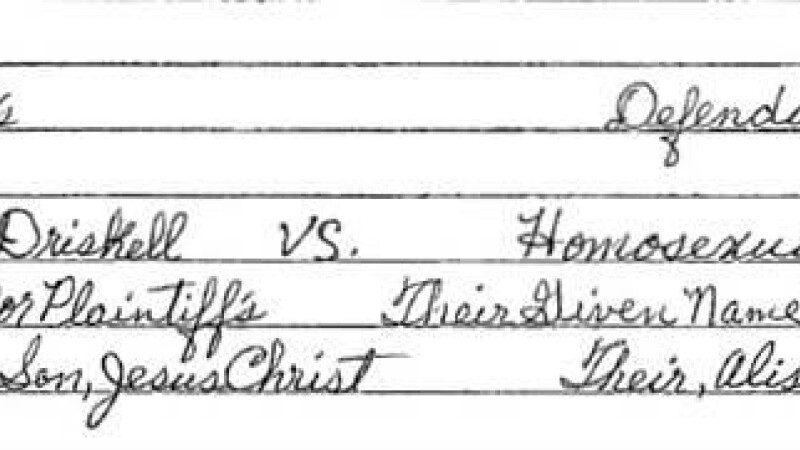 's Defenda
Driskell VS. Homosexua
or Plaintiff's Their Given Name
Son, Jesus Christ Their, Alis